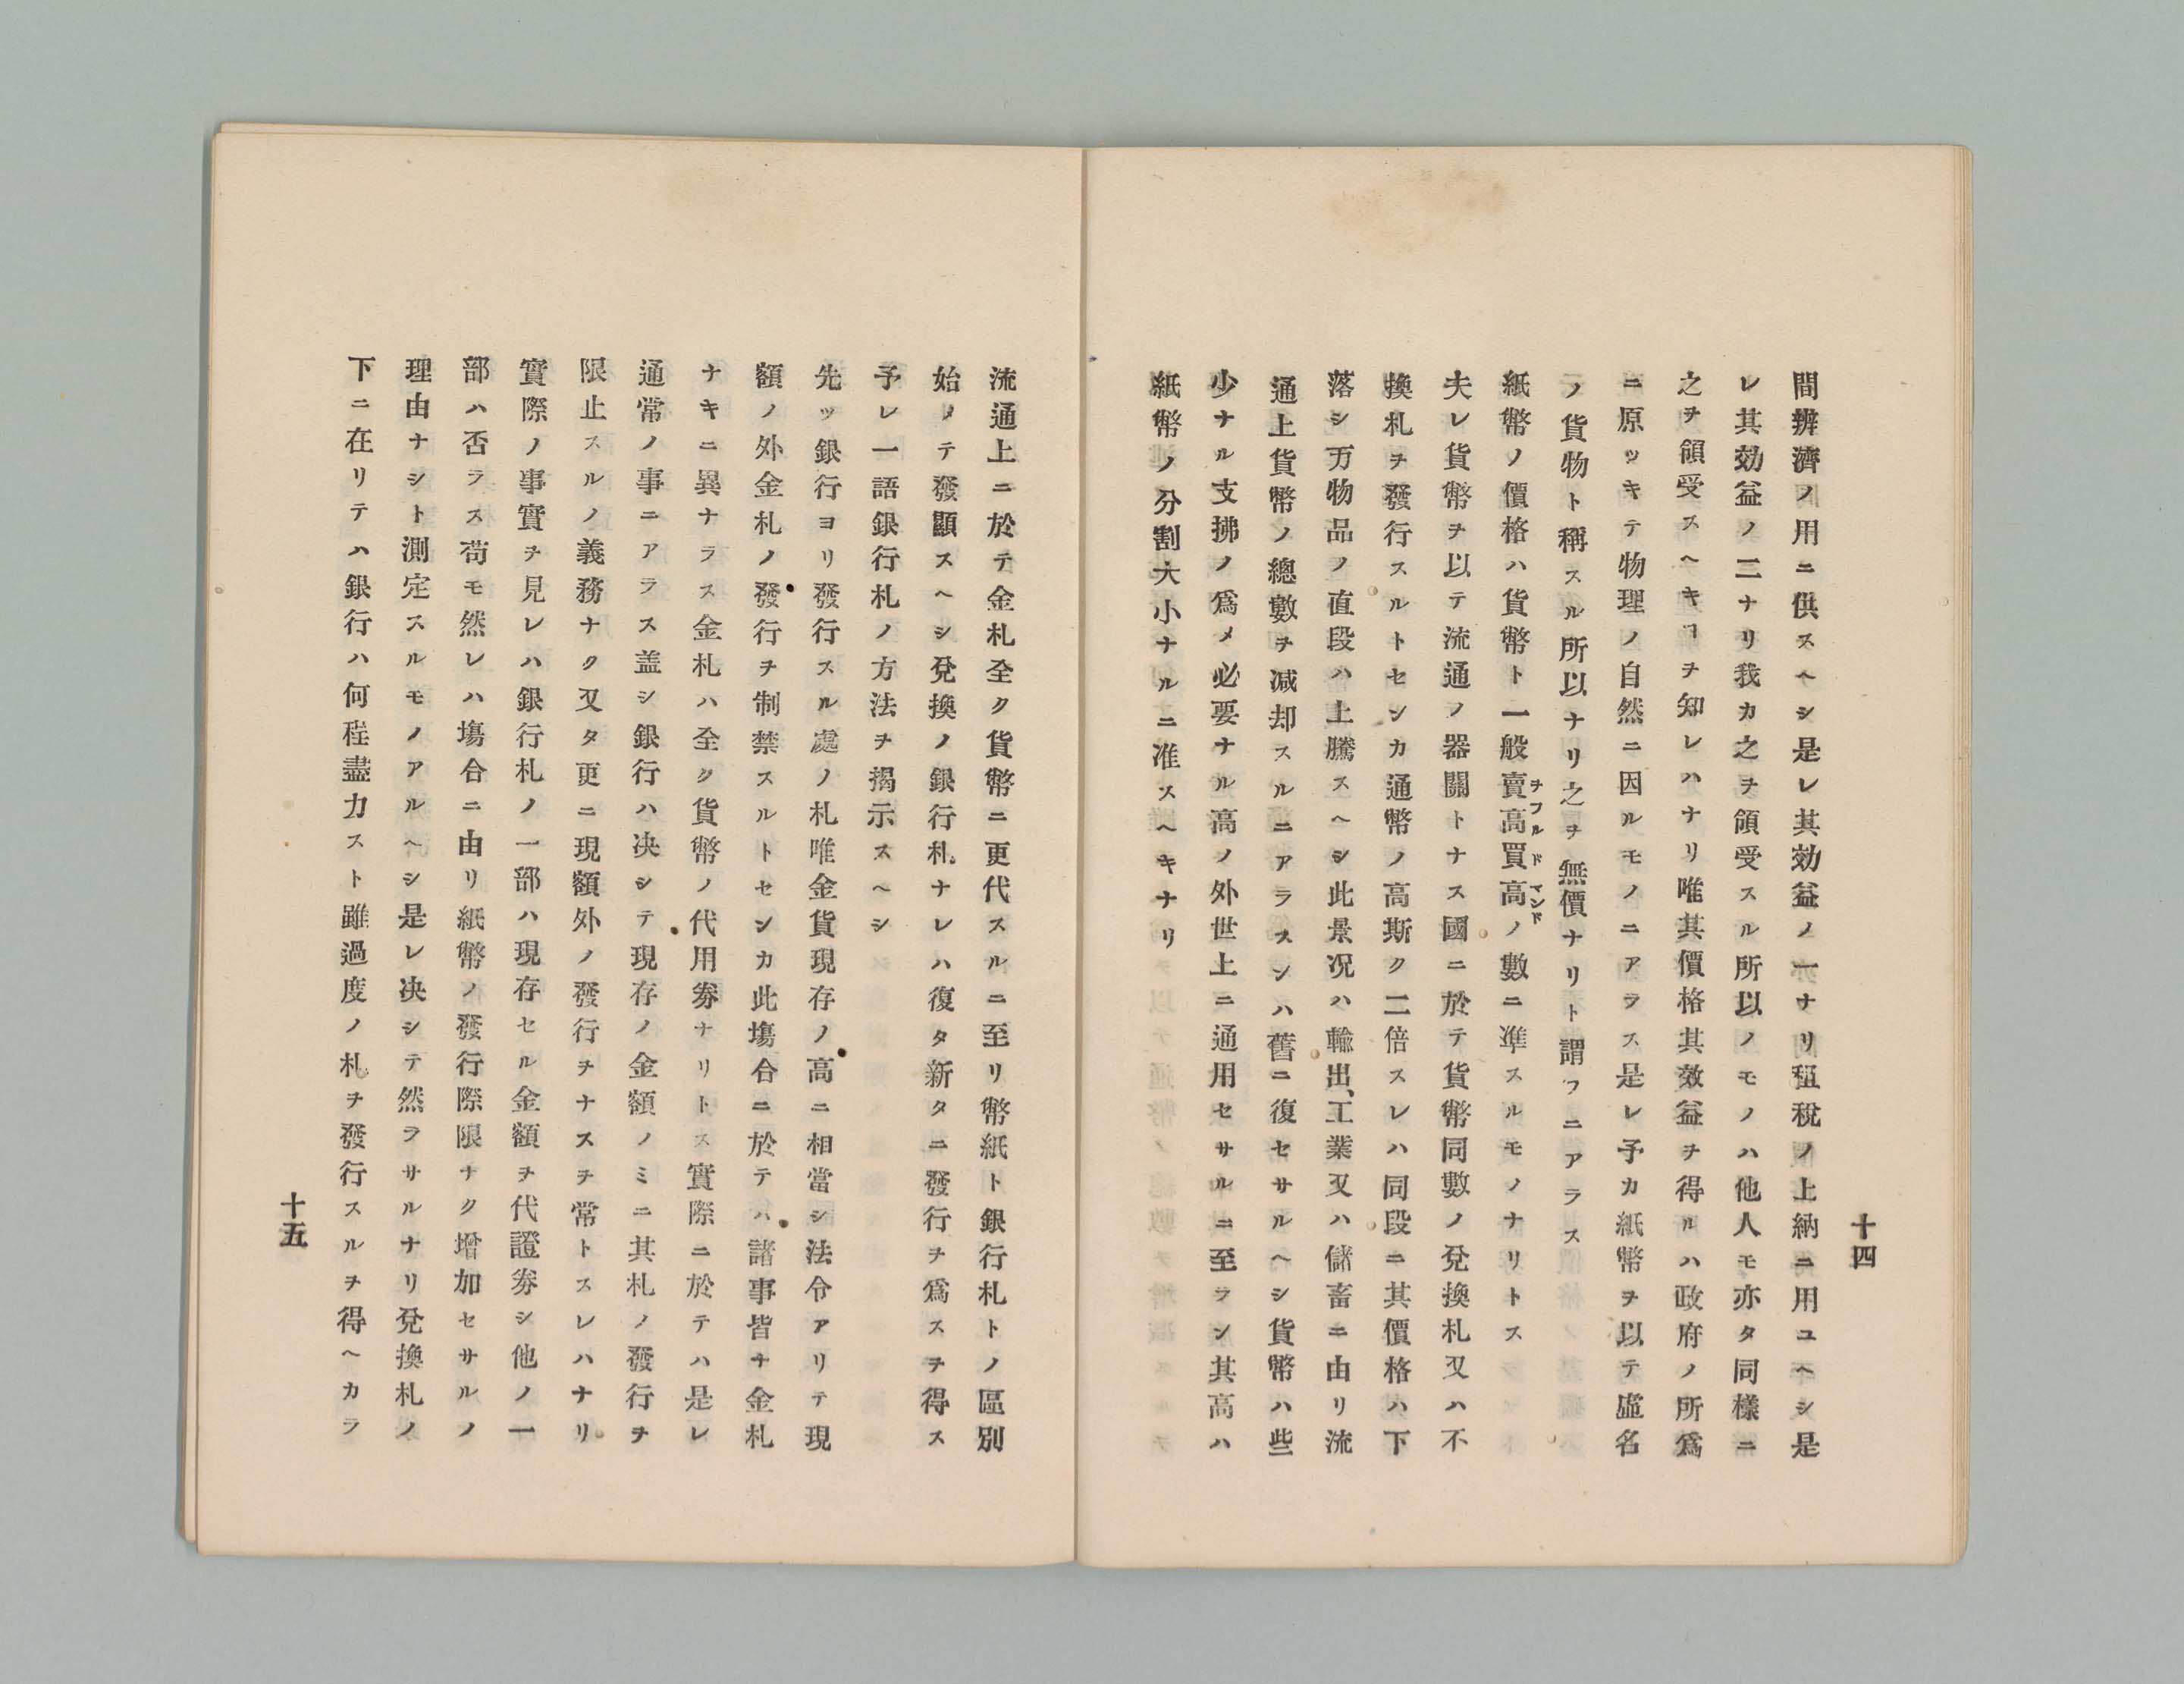 十四
間辨濟ノ用ニ供スヘシ是レ其効益ノ一ナリ租税ノ上納ニ用ユヘシ是
レ其効益ノ二ナリ我カ之ヲ領受スル所以ノモノハ他人モ亦タ同樣ニ
之ヲ領受スヘキヿヲ知レハナリ唯其價格其效益ヲ得ルハ政府ノ所爲
ニ原ッキテ物理ノ自然ニ因ルモノニアラス是レ予カ紙幣ヲ以テ虛名
ノ貨物ト稱スル所以ナリ之ヲ無價ナリト謂フニアラス
紙幣ノ價格ハ貨幣ト一般賣高買高ノ數ニ準スルモノナリトス
ヲフルドマンド
夫レ貨幣ヲ以テ流通ノ器關トナス國ニ於テ貨幣同數ノ兌換札又ハ不
換札ヲ發行スルトセンカ通幣ノ高斯ク二倍スレハ同段ニ其價格ハ下
落シ万物品ノ直段ハ上騰スヘシ此景况ハ輸出、工業又ハ儲畜ニ由リ流
通上貨幣ノ總數ヲ減却スルニアラスンハ舊ニ復セサルヘシ貨幣ハ些
少ナル支拂ノ爲メ必要ナル高ノ外世上ニ通用セサルニ至ラン其高ハ
紙幣ノ分割大小ナルニ准スヘキナリ
流通上ニ於テ金札全ク貨幣ニ更代スルニ至リ幣紙ト銀行札トノ區別
始メテ發顯スヘシ兌換ノ銀行札ナレハ復タ新タニ發行ヲ爲スヲ得ス
予レ一語銀行札ノ方法ヲ揭示スヘシ
先ッ銀行ヨリ發行スル處ノ札唯金貨現存ノ高ニ相當シ法令アリテ現
額ノ外金札ノ發行ヲ制禁スルトセンカ此塲合ニ於テハ諸事皆ナ金札
ナキニ異ナラス金札ハ全ク貨幣ノ代用劵ナリトス實際ニ於テハ是レ
通常ノ事ニアラス盖シ銀行ハ决シテ現存ノ金額ノミニ其札ノ發行ヲ
限止スルノ義務ナク又タ更ニ現額外ノ發行ヲナスヲ常トスレハナリ
實際ノ事實ヲ見レハ銀行札ノ一部ハ現存セル金額ヲ代證劵シ他ノ一
部ハ否ラス苟モ然レハ塲合ニ由リ紙幣ノ發行際限ナク增加セサルノ
理由ナシト測定スルモノアルヘシ是レ决シテ然ラサルナリ兌換札ノ
下ニ在リテハ銀行ハ何程盡力スト雖過度ノ札ヲ發行スルヲ得ヘカラ
十五